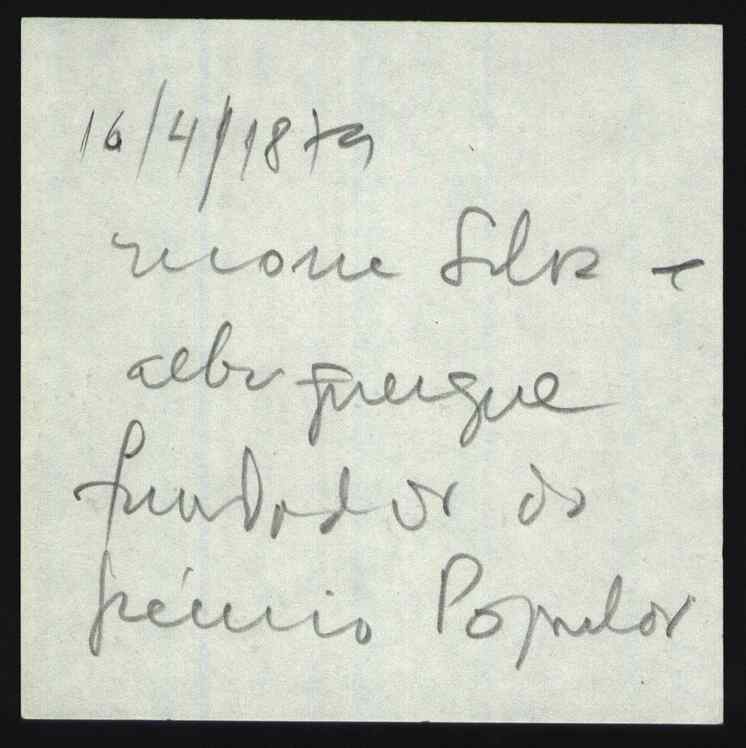 16/4/1879
morre Silva e
albuquerque
fundador do
Grémio Popular